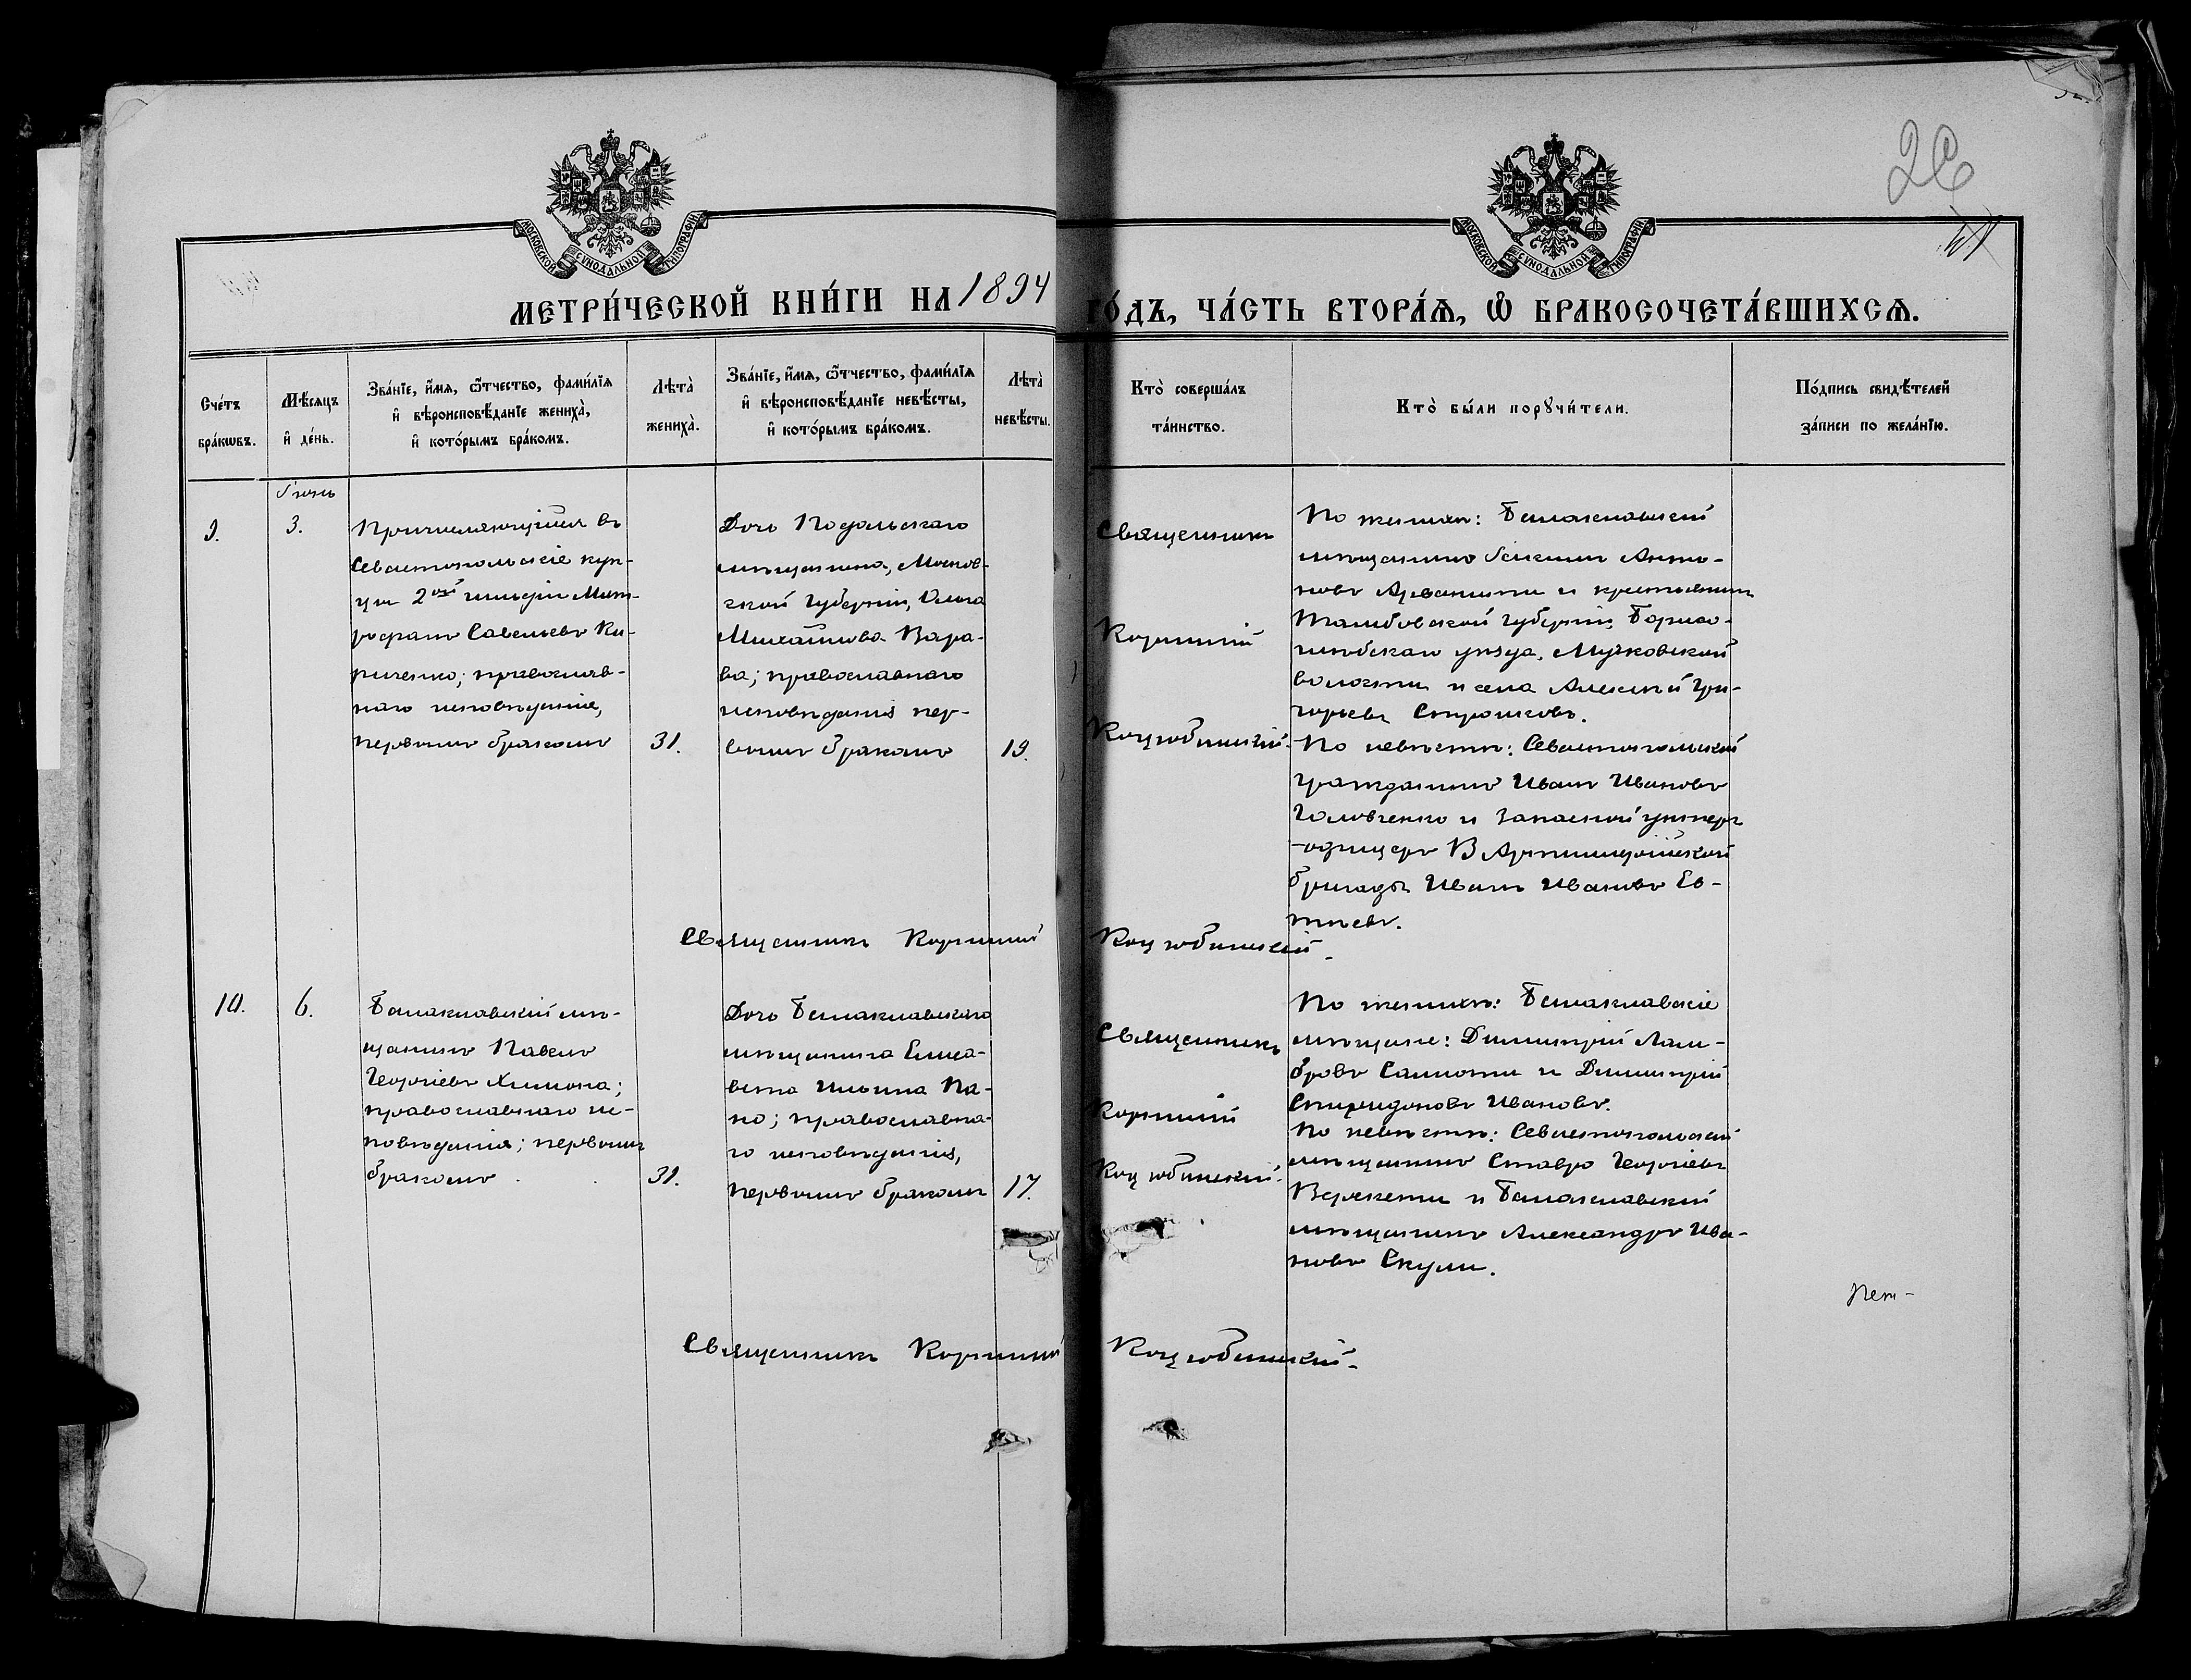 26
МОСКОВСКОЙ СУНОДАЛЬНОЙ ТИПОГРАФІИ
МОСКОВСКОЙ СУНОДАЛЬНОЙ ТИПОГРАФІИ
МЕТРИ́ЧЕСКОЙ КНИ́ГИ НА 1894 ГО́ДЪ, ЧА́СТЬ ВТОРА́Ѧ, Ѽ БРАКОСОЧЕТА́ВШИХСѦ.
Сче́тъ
бра́кѡвъ.
Мѣ́сяцъ
и҆ де́нь.
Зва́нїе, и҆́мя, ѻ҆́тчество, фами́лїя
и҆ вѣроисповѣ́данїе жениха̀,
и҆ кото́рымъ бра́комъ.
Лѣта̀
жениха̀.
Зва́нїе, и҆́мя, ѻ҆́тчество, фами́лїя
и҆ вѣроисповѣ́данїе невѣ́сты,
и҆ кото́рымъ бра́комъ.
Лѣта̀
невѣ́сты.
Кто̀ соверша́лъ
та́инство.
Кто̀ бы́ли порꙋчи́тели.
По́дпись свидѣ́телей
за́писи по жела́нїю.
Іюнь
9.
3.
Причисляющійся въ
Севастопольскіе куп-
цы 2ой гильдіи Мит-
рофанъ Савельевъ Ки-
риченко; православ-
наго исповѣданія,
первымъ бракомъ
31.
Дочь Подольскаго
мѣщанина, Москов-
ской губерніи, Ольга
Михайлова Вара-
ва; православнаго
исповѣданія пер-
вымъ бракомъ
19.
Священникъ
Корнилій
Коцюбинскій.
По женихѣ: Балаклавскій
мѣщанинъ Анто-
новъ Арванити и крестьянинъ
Тамбовской губерніи, Борисо-
глѣбскаго уѣзда, Мучковской
волости и села Алексѣй Гри-
горьевъ Строшковъ.
По невѣстѣ: Севастопольскій
гражданинъ Иванъ Ивановъ
Головченко и запасной унтеръ
-офицеръ 13 Артиллерійской
бригады Иванъ Ивановъ Ев-
тѣевъ.
Священникъ Корнилій Коцюбинскій.
10.
6.
Балаклавскій мѣ-
щанинъ Павелъ
Георгіевъ Химона;
православнаго ис-
повѣданія; первымъ
бракомъ.
31.
Дочь Балаклавскаго
мѣщанина Елиса-
вета Ильина Па-
по; православна-
го исповѣданія,
первымъ бракомъ
17.
Священникъ
Корнилій
Коцюбинскій.
По женихѣ: Балаклавскіе
мѣщане: Димитрій Лам-
бровъ Саммоти и Димитрій
Спиридоновъ Ивановъ.
По невѣстѣ: Севастопольскій
мѣщанинъ Ставро Георгіевъ
Веряжети и Балаклавскій
мѣщанинъ Александръ Ива-
новъ Скули.
Священникъ Корнилій Коцюбинскій.